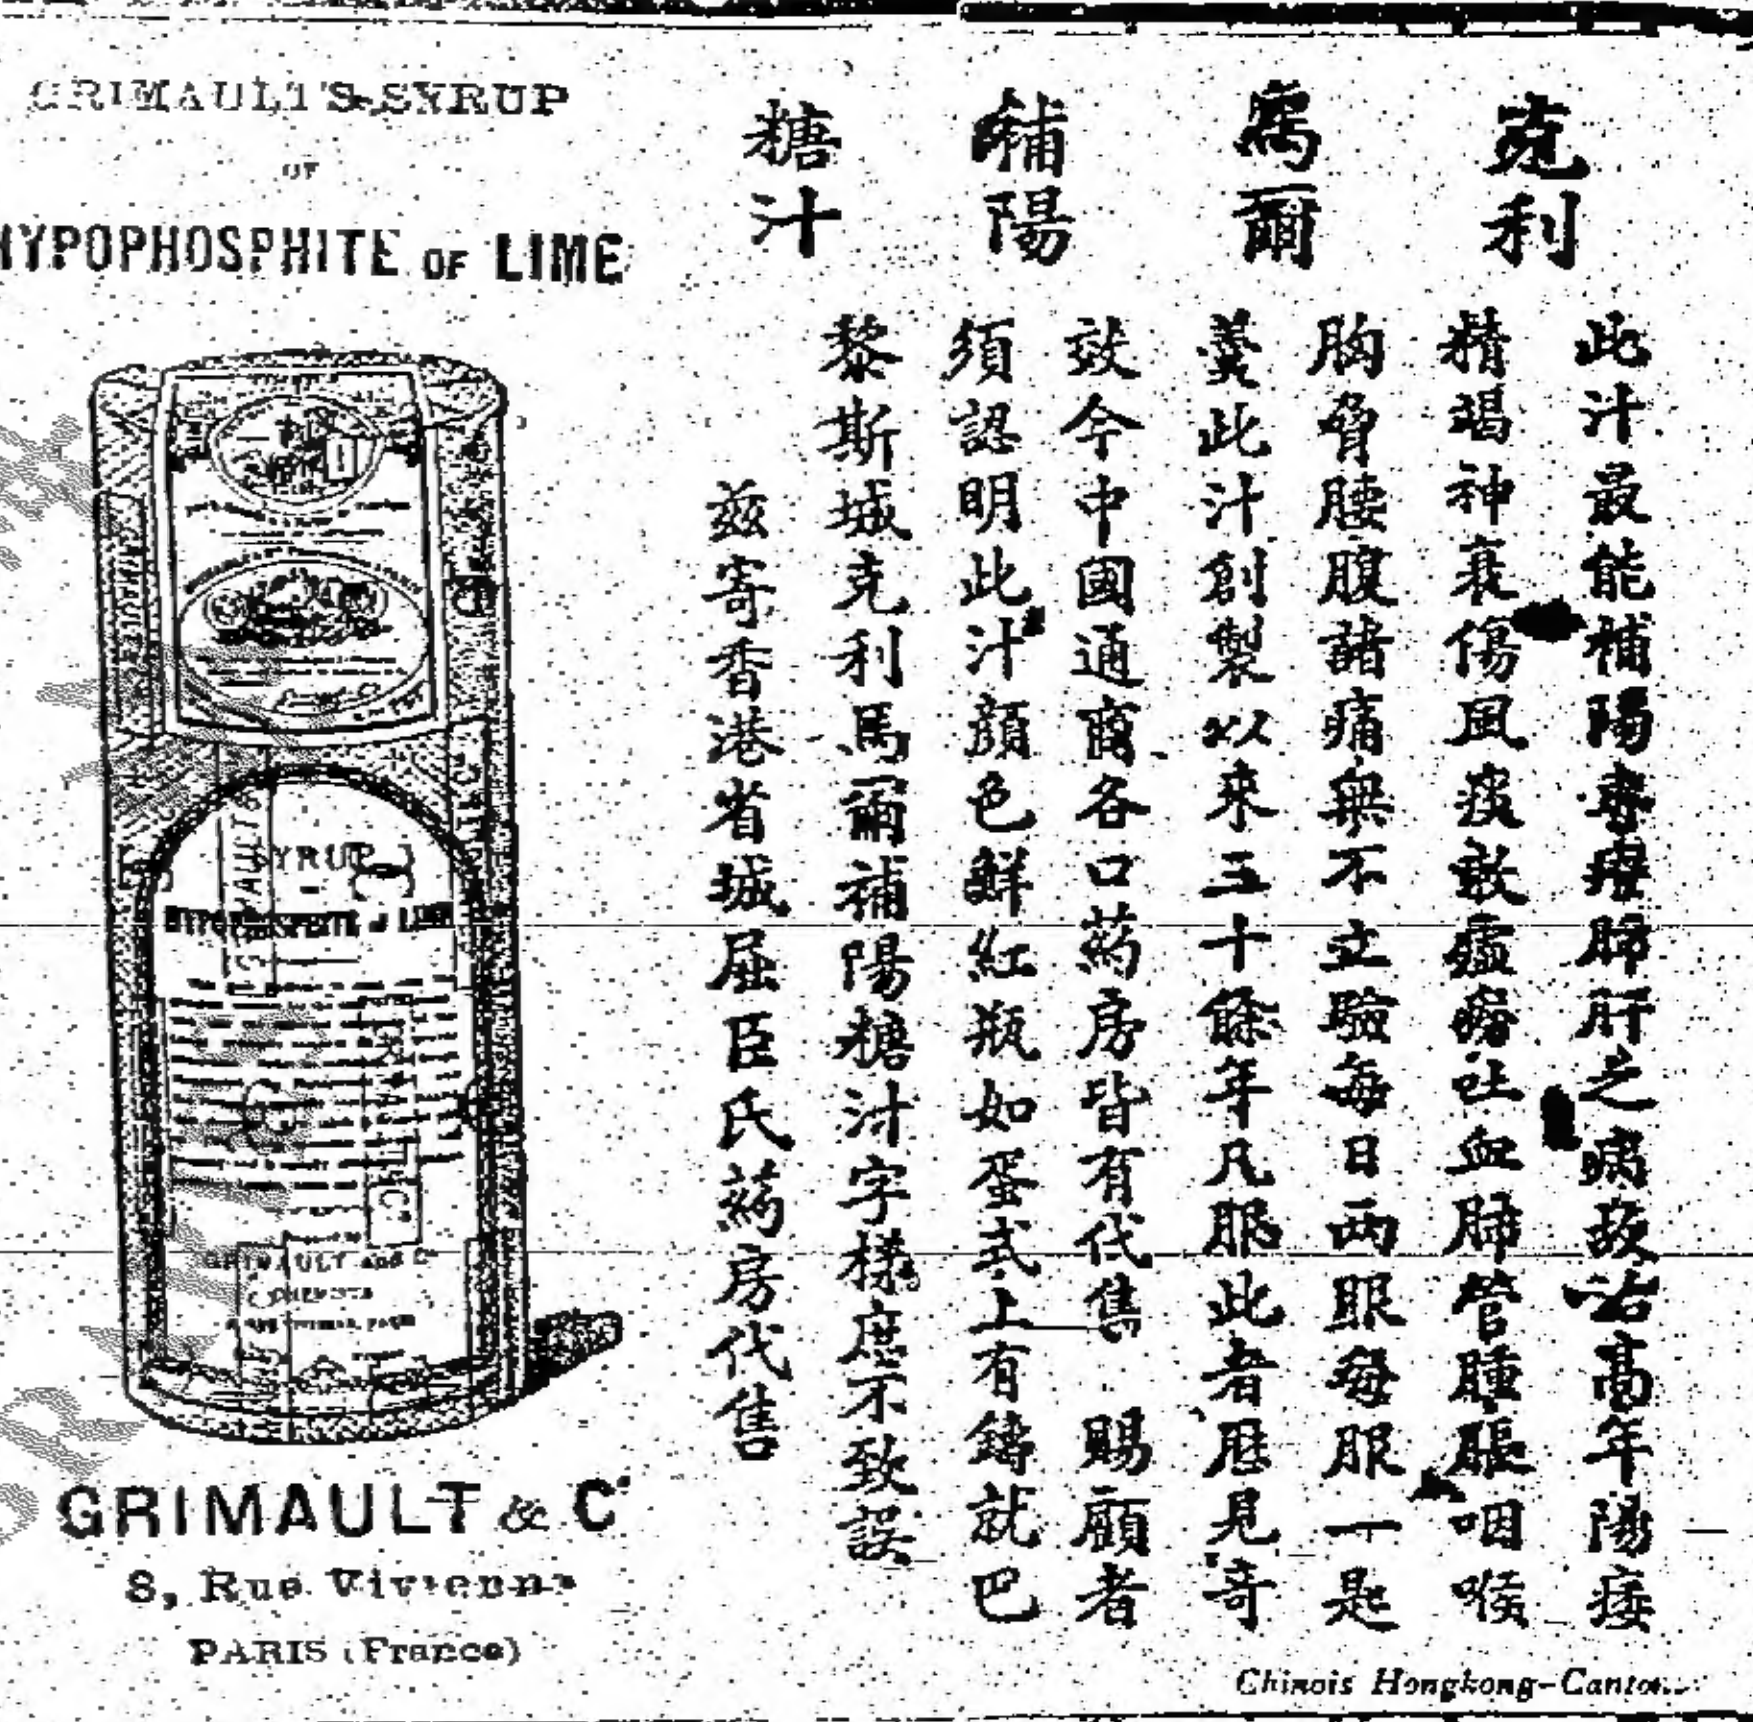 GRIMAULT'S SYRUP
OF
HYPOPHOSPHITE OF LIME
SYRUP
HYPOPHOSPHITE of LIME
GRIMAULT AND Co
CHEMISTS
GRIMAULT & Co
8, Rue Vivienne
PARIS (France)
克利
馬爾
補陽
糖汁
此汁最能補陽専療肺肝之病故治高年陽痿
精竭神衰傷風痰欬癆瘵吐血肺管腫脹咽喉
胸脅腰腹諸痛無不立驗每日兩服每服一匙
羹此汁創製以來三十餘年凡服此者屢見奇
效今中國通商各口葯房皆有代售 賜顧者
須認明此汁顏色鮮紅瓶如蛋式上有鑄就巴
黎斯城克利馬爾補陽糖汁字樣庶不致誤
茲寄香港省城屈臣氏葯房代售
Chinois Hongkong-Canton